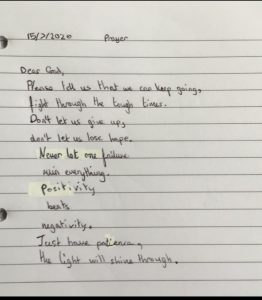 15/7/2020 Prayer
Dear God,
Please tell us that we can keep going,
fight through the tough times.
Don't let us give up,
don't let us lose hope.
Never let one failure
ruin everything.
Positivity
beats
negativity.
Just have patience,
the light will shine through.